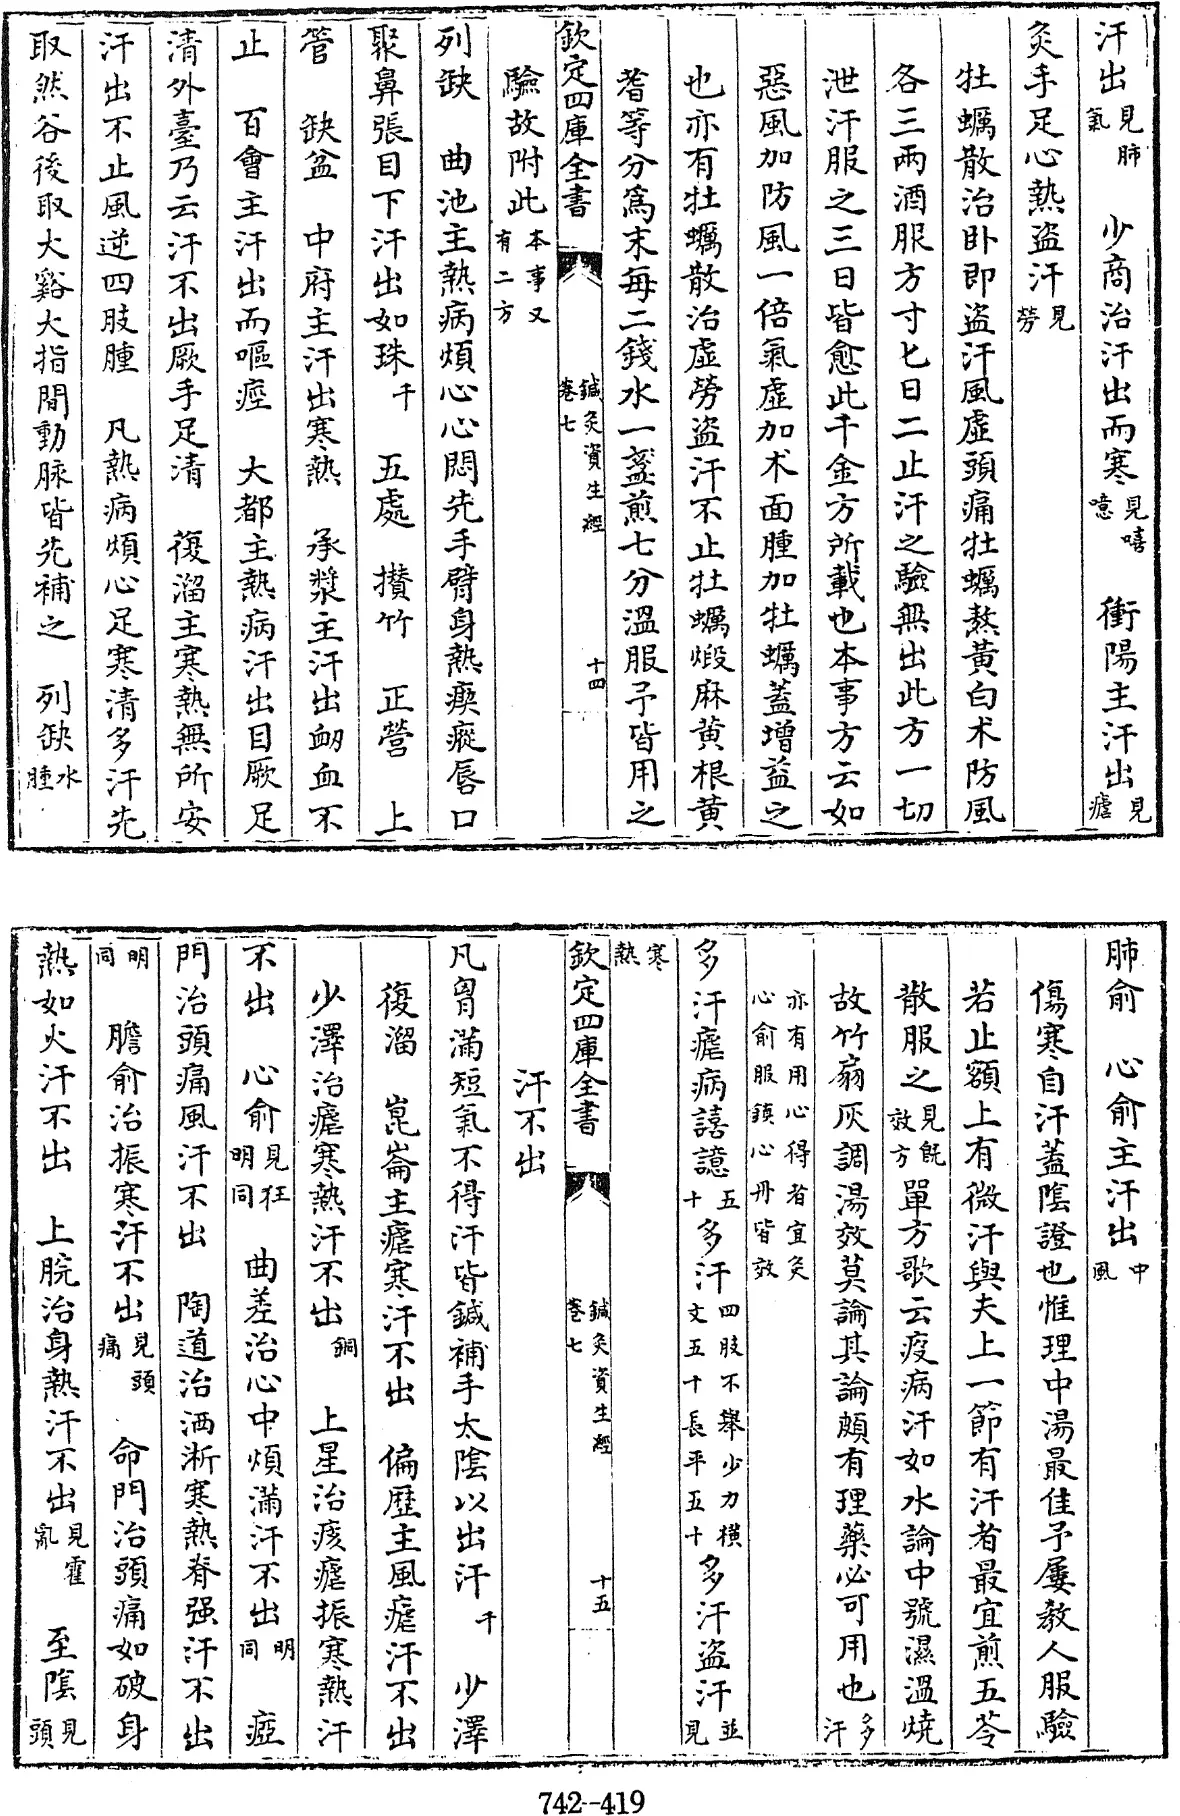 汗出見肺氣　少商治汗出而寒見嘻噫　衝陽主汗出見瘧
灸手足心熱盜汗見勞
牡蠣散治卧即盜汗風虛頭痛牡蠣熬黃白术防風
各三兩酒服方寸匕日二止汗之驗無出此方一切
泄汗服之三日皆愈此千金方所載也本事方云如
惡風加防風一倍氣虛加术面腫加牡蠣蓋增益之
也亦有牡蠣散治虛勞盜汗不止牡蠣煅麻黃根黃
耆等分爲末每二錢水一盞煎七分溫服予皆用之
欽定四庫全書　鍼灸資生經卷七　十四
驗故附此本事又有二方
列缺　曲池主熱病煩心心悶先手臂身熱瘈瘲唇口
聚鼻張目下汗出如珠千　五處　攢竹　正營　上
管　缺盆　中府主汗出寒熱　承漿主汗出衂血不
止　百會主汗出而嘔痙　大都主熱病汗出目厥足
清外臺乃云汗不出厥手足清　復溜主寒熱無所安
汗出不止風逆四肢腫　凡熱病煩心足寒清多汗先
取然谷後取大谿大指間動脉皆先補之　列缺水腫
肺俞　心俞主汗出中風
傷寒自汗蓋陰證也惟理中湯最佳予屢敎人服驗
若止額上有微汗與夫上一節有汗者最宜煎五苓
散服之見旣效方單方歌云疫病汗如水論中號濕溫燒
故竹扇灰調湯效莫論其論頗有理藥必可用也多汗
亦有用心得者宜灸心俞服鎮心丹皆效
多汗瘧病譩譆五十多汗四肢不舉少力橫文五十長平五十多汗盜汗並見
寒熱
欽定四庫全書　鍼灸資生經卷七　十五
汗不出
凡胷滿短氣不得汗皆鍼補手太陰以出汗千　少澤
復溜　崑崙主瘧寒汗不出　偏歷主風瘧汗不出
少澤治瘧寒熱汗不出銅　上星治痎瘧振寒熱汗
不出　心俞見狂明同　曲差治心中煩滿汗不出明同　瘂
門治頭痛風汗不出　陶道治洒淅寒熱脊强汗不出
明同　膽俞治振寒汗不出見頭痛　命門治頭痛如破身
熱如火汗不出　上脘治身熱汗不出見霍亂　至陰見頭
742--419